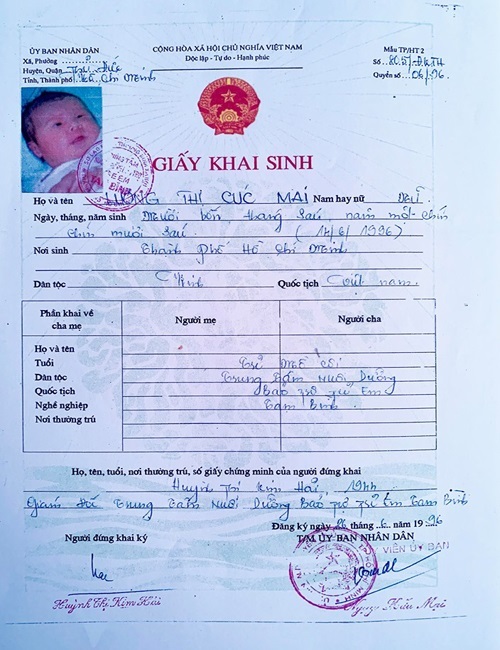 ỦY BAN NHÂN DÂN
Xã, Phường
Huyện, Quận Thủ Đức
Tỉnh, Thành phố Hồ Chí Minh
CỘNG HÒA XÃ HỘI CHỦ NGHĨA VIỆT NAM
Độc lập - Tự do - Hạnh phúc
Mẫu TP/HT 2
Số
Quyển số 06/96
GIẤY KHAI SINH
Họ và tên LƯƠNG THỊ CÚC MAI Nam hay nữ Nữ
Ngày, tháng, năm sinh Mười bốn tháng sáu, năm một chín
chín mươi sáu (14/6/1996)
Nơi sinh Thành Phố Hồ Chí Minh
Dân tộc Kinh Quốc tịch Việt nam
Phần khai về cha mẹ
Người mẹ
Người cha
Họ và tên
Tuổi
Dân tộc
Quốc tịch
Nghề nghiệp
Nơi thường trú
Trẻ mồ côi
Trung tâm nuôi dưỡng
Bảo trợ trẻ em
Tam Bình
Họ, tên, tuổi, nơi thường trú, số giấy chứng minh của người đứng khai
Huỳnh Thị Kim Hải, 1944
Giám đốc Trung tâm nuôi dưỡng Bảo trợ trẻ em Tam Bình
Đăng ký ngày 26 tháng 6 năm 1996
Người đứng khai ký
T/M ỦY BAN NHÂN DÂN
VIÊN ỦY BAN
Huỳnh Thị Kim Hải